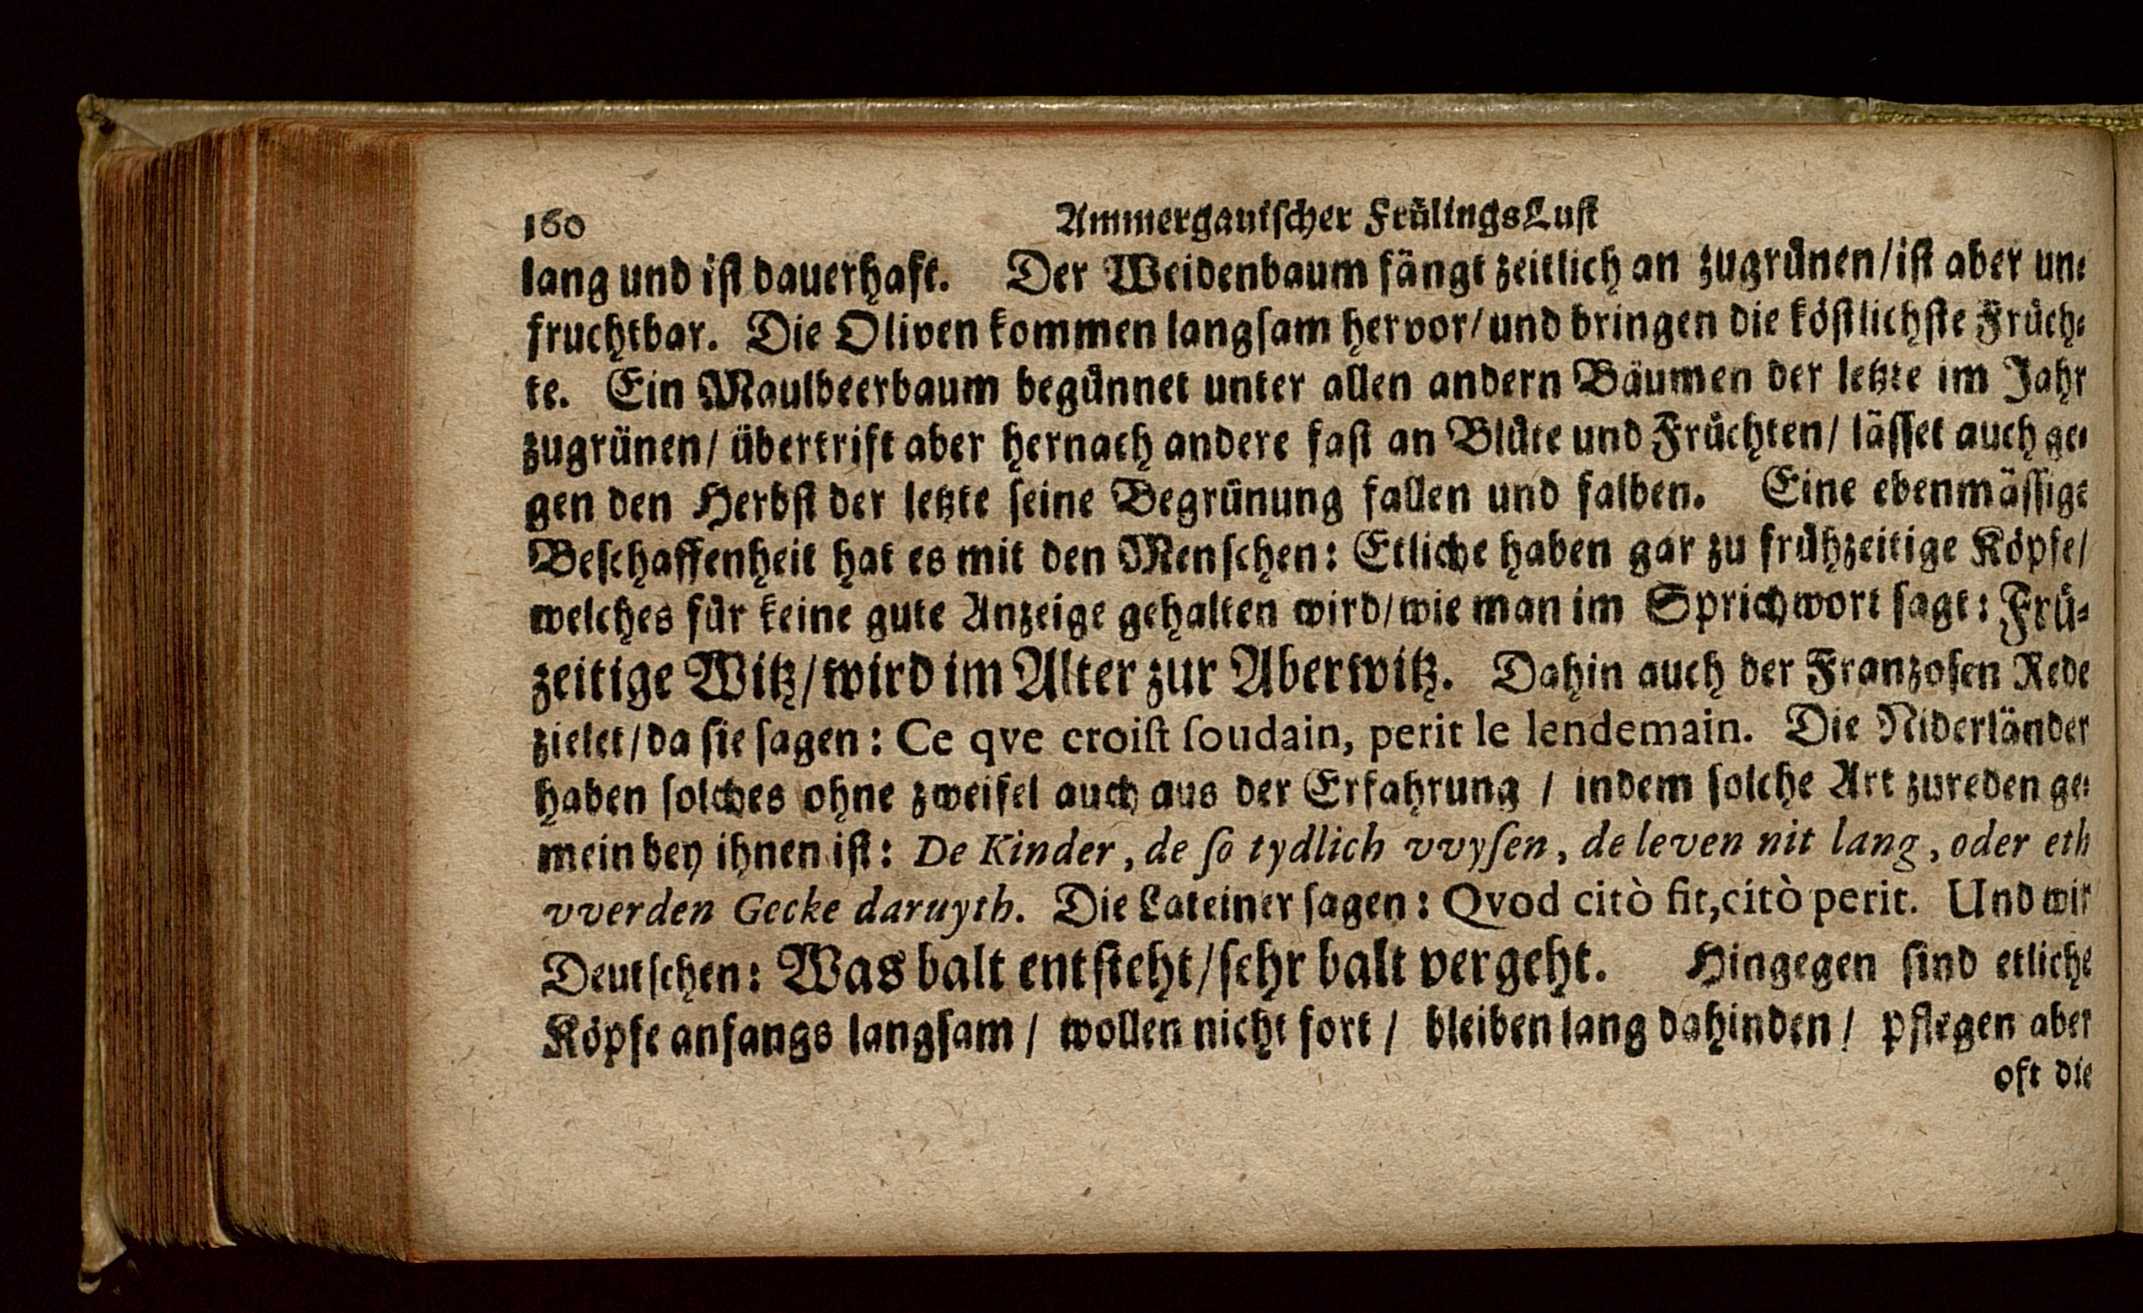 160 Ammergauischer FrülingsLust
lang und ist dauerhaft. Der Weidenbaum fängt zeitlich an zugrünen/ist aber un-
fruchtbar. Die Oliven kommen langsam hervor/und bringen die köstlichste Früch-
te. Ein Maulbeerbaum begünnet unter allen andern Bäumen der letzte im Jahr
zugrünen/ übertrift aber hernach andere fast an Blüte und Früchten/ lässet auch ge-
gen den Herbst der letzte seine Begrünung fallen und falben. Eine ebenmässige
Beschaffenheit hat es mit den Menschen: Etliche haben gar zu frühzeitige Köpfe/
welches für keine gute Anzeige gehalten wird/wie man im Sprichwort sagt: Frü-
zeitige Witz/wird im Alter zur Aberwitz. Dahin auch der Franzosen Rede
zielet/da sie sagen: Ce qve croist soudain, perit le lendemain. Die Niderländer
haben solches ohne zweifel auch aus der Erfahrung / indem solche Art zureden ge-
mein bey ihnen ist: De Kinder, de so tydlich vvysen, de leven nit lang, oder eth
vverden Gecke daruyth. Die Lateiner sagen: Qvod citò fit,citò perit. Und wir
Deutschen: Was balt entsteht/sehr balt vergeht. Hingegen sind etliche
Köpfe anfangs langsam / wollen nicht fort / bleiben lang dahinden / pflegen aber
oft die